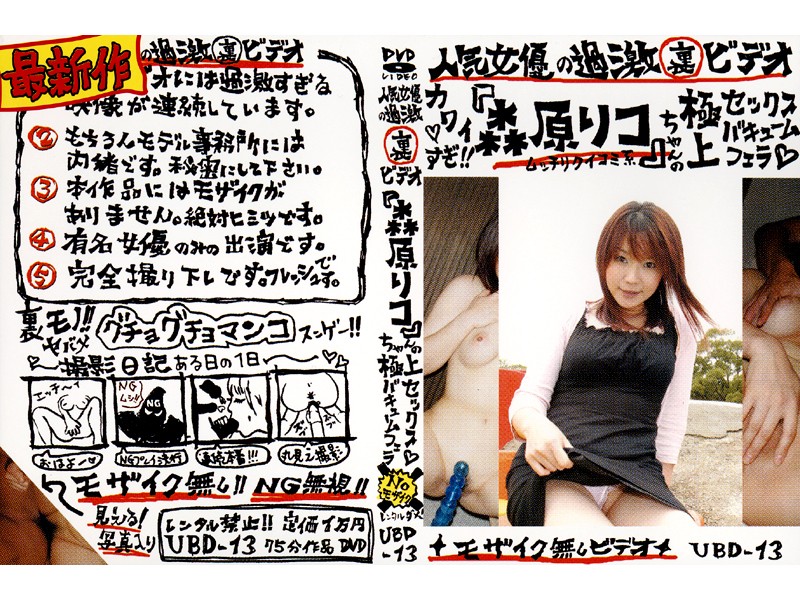 最新作
の過激裏ビデオ
オには過激すぎる
映像が連続しています。
② もちろんモデル事務所には
内緒です。秘密にして下さい。
③ 本作品にはモザイクが
ありません。絶対ヒミツです。
④ 有名女優のみの出演です。
⑤ 完全撮り下しです。フレッシュです。
裏モノ!!
ヤバメ
グチョグチョマンコ
スンゲー!!
撮影日記ある日の1日
エッチ〜イ
NG
ムシ!!
NG
おはよー
NGプレイ決行
連続本番!!!
丸見え撮影
モザイク無し!! NG無視!!
見える!
写真入り
レンタル禁止!! 定価1万円
UBD-13 75分作品 DVD
DVD
VIDEO
人気女優の過激
裏ビデオ
『森原リコ』ちゃんの
極上セックス♡
バキュームフェラ
No
モザイク
レンタルダメ!
UBD
-13
人気女優の過激裏ビデオ
カワイ
すぎ!!
『森原リコ』ちゃんの
ムッチリクイコミ系
極上
セックス
バキューム
フェラ♡
モザイク無しビデオ
UBD-13